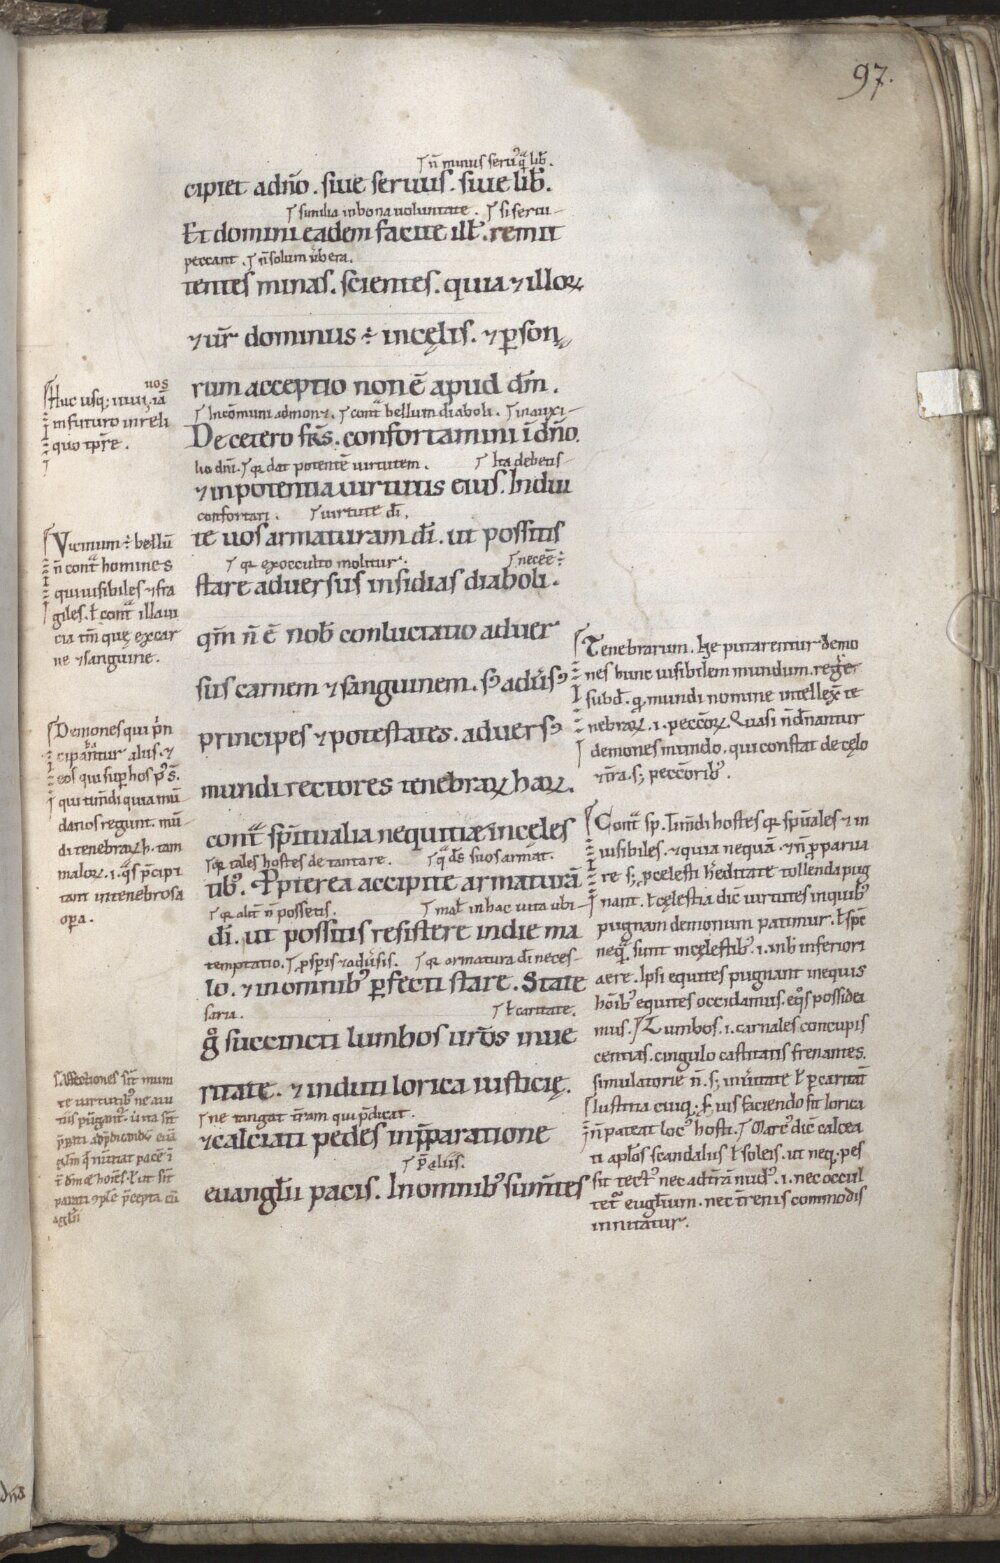 97.
⁊ n̄ minus seru⁹ qͣ lib̄.
cipiet adn̄o. siue seruus. siue lib̄.
⁊ similia in bona uoluntate. ⁊ si serui
Et domini eadem facite ill̄. remit
peccant. ⁊ n̄ solum ūbera.
tentes minas. scientes. quia ⁊ illoꝝ
⁊ ur̄ dominus ÷ in cęlis. ⁊ ꝑson
rum acceptio non ē apud dm̄.
⁊ In cōmuni admonet. ⁊ contͣ bellum diaboli. ⁊ in auxi
De cetero frs̄. confortamini ī dn̄o.
lio dn̄i. ⁊ qr dat potentē uirtutem. ⁊ Ita debetis
⁊ in potentia uirtutis eius. Indui
confortari. ⁊ uirtute dī.
te uos armaturam dī. ut possitis
⁊ qr ex occulto molitur. ⁊ necēē ÷
stare aduersus insidias diaboli.
qm̄ n̄ ē nob̄ conluctatio aduer
sus carnem ⁊ sanguinem. sꝫ adūsꝰ
principes ⁊ potestates. aduersꝰ
mundi rectores tenebraꝝ haꝝ.
contͣ spītualia nequitiæ in cęles
⁊ qr tales hostes detantare. ⁊ qͣ dš suos armat.
tibꝰ. Ꝓpterea accipite armaturā
⁊ qr alit̄ n̄ possetis. ⁊ mal̄ in hac uita ubi
dī. ut possitis resistere in die ma
temptatio. ⁊ ꝓsꝑis ⁊ adūsis. ⁊ qr armatura dī neces
lo. ⁊ in omnibꝰ ꝑfecti stare. State
saria. ⁊ ł caritate.
gͦ succincti lumbos uros̄ in ue
ritate. ⁊ induti lorica iusticię.
⁊ ne tangat tr̄am qui p̄dicat.
⁊ calciati pedes in p̄paratione
⁊ p̄ aliis.
euangl̄ii pacis. In omnibꝰ sum̄tes
uos
Huc usqꝫ
in futuro in reli
quo tpr̄e.
Vicinum ÷ bellū
n̄ contͣ homines
qui uisibiles ⁊ fra
giles. ł contͣ illa ui
cia tm̄ quę ex car
ne ⁊ sanguine.
Demones qui p̄n
cipantur aliis. ⁊
eos qui suꝑ hos p̄s̄.
qui tim̄di quia mū
danos regunt. mū
di tenebraꝝ h. tam
maloꝝ. .i. qͣsi p̄cipi
tant in tenebrosa
opa.
Affectiones sīt mun
te uirtutibꝰ
Tenebrarum. He putarentur demo
nes hunc uisibilem mundum regere
subd̄. qͥ mundi nomine intellexit te
nebraꝝ .i. peccōꝝ. Quasi n̄ dn̄antur
demones mundo. qui constat de cęlo
⁊ tr̄a. sꝫ peccōribꝰ.
Contͣ sp. Tim̄di hostes qr spūales ⁊ in
uisibiles. ⁊ quia nequā. ⁊ n̄ ꝓ parua
re sꝫ ꝓ celesti h̄editate tollenda pug
nant. ł cęlestia dic̄ uirtutes in quibꝰ
pugnam demonum patimur. ł spc̄
neqͥ. sunt in cęlestibꝰ .i. in hꝰ inferiori
aere. Ipsi equites pugnant in equis
hōibꝰ equites occidamus. eqͦs posside
mus. Lumbos. .i. carnales concupis
centias. cingulo castitatis frenantes.
simulatorie n̄. sꝫ in ūitate ł ꝓ caritat̄
Iustitia cuiqꝫ ius faciendo sit lorica
n̄ pateat locꝰ hosti. More dic̄ calcea
ti apl̄os scandaliis ł soleis. ut neqꝫ pes
sit tectꝰ nec ad tr̄am nudꝰ .i. nec occul
tetͬ eugl̄ium. nec tr̄enis commodis
innitatur.